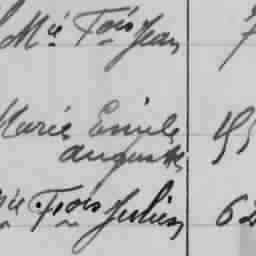 Mie Fois Jean 7
Marie Emile 45
auguste
Mie Fois Julien 62